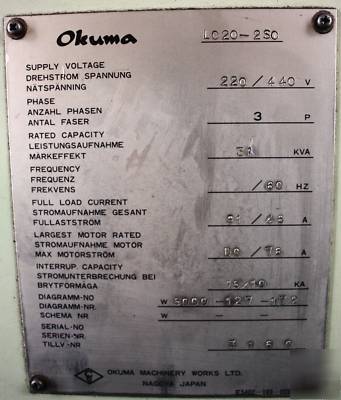 Okuma LC20-2SC
SUPPLY VOLTAGE
DREHSTROM SPANNUNG
NÄTSPÄNNING
220/440 V
PHASE
ANZAHL PHASEN
ANTAL FASER
3 P
RATED CAPACITY
LEISTUNGSAUFNAHME
MÄRKEFFEKT
KVA
FREQUENCY
FREQUENZ
FREKVENS
/60 HZ
FULL LOAD CURRENT
STROMAUFNAHME GESANT
FULLASTSTRÖM
A
LARGEST MOTOR RATED
STROMAUFNAHME MOTOR
MAX MOTORSTRÖM
A
INTERRUP. CAPACITY
STROMUNTERBRECHUNG BEI
BRYTFÖRMAGA
KA
DIAGRAMM-NO
DIAGRAMM-NR.
SCHEMA NR
W 3000-127-
W - -
SERIAL-NO
SERIEN-NR.
TILLV-NR
OKUMA MACHINERY WORKS LTD.
NAGOYA JAPAN